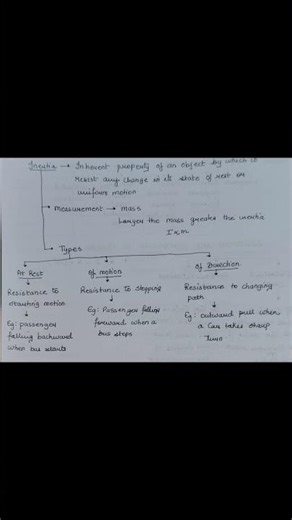 Inertia → Inherent property of an object by which it
resist any change in its state of rest or
uniform motion
→ Measurement → mass
Larger the mass greater the inertia
I ∝ m
→ Types
At Rest
Resistance to
starting motion
Eg: passenger
falling backward
when bus starts
Of motion
Resistance to stopping
Eg: Passenger falling
forward when a
bus stops
Of Direction
Resistance to changing
path
Eg: outward pull when
a car takes sharp
turn